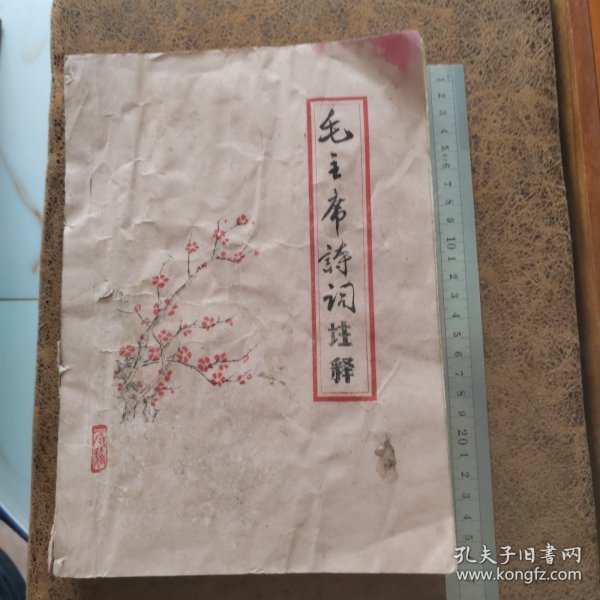 毛主席詩词註释
1 2 3 4 5 6 7 8 9 10 1 2 3 4 5 6 7 8 9 20 1 2 3 4 5
孔夫子旧书网
www.kongfz.com